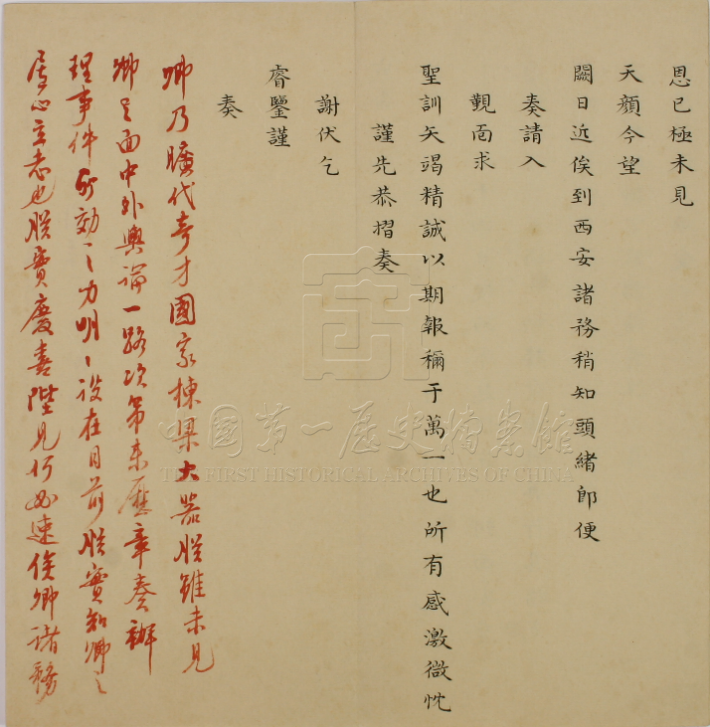 恩已極未見
天顏今望
闕日近俟到西安諸務稍知頭緒即便
奏請入
覲面求
聖訓矢竭精誠以期報稱于萬一也所有感激微忱
謹先恭摺奏
謝伏乞
睿鑒謹
奏
卿乃曠代奇才國家棟梁大器朕雖未見
卿之面中外輿論一路次第來歷章奏辦
理事件所効之力明明設在目前朕實知卿之
居心立志也朕實慶喜陛見何必速俟卿諸務
中國第一歷史檔案館
THE FIRST HISTORICAL ARCHIVES OF CHINA